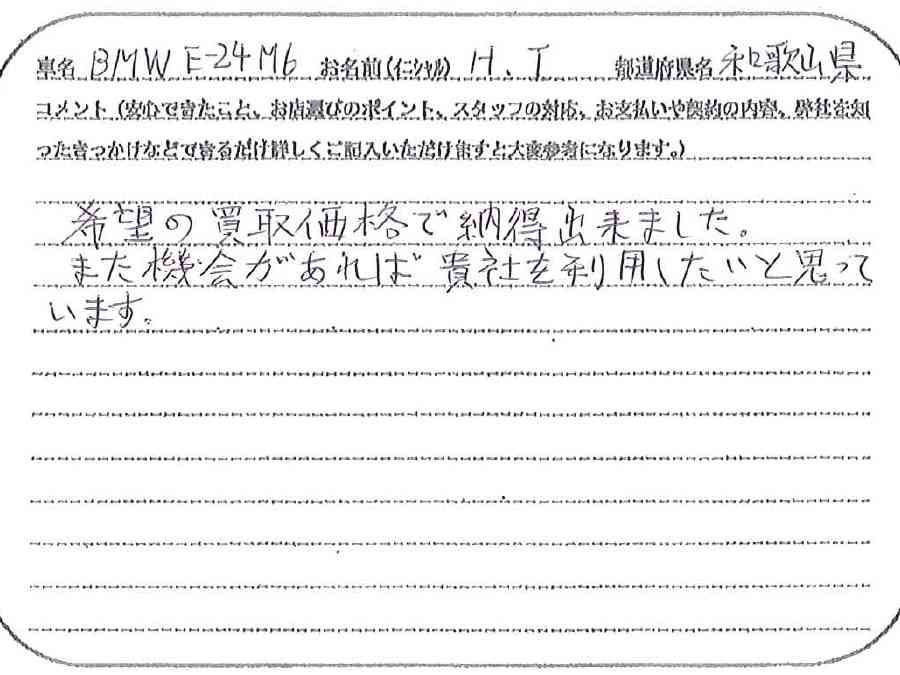 車名 BMW E-24 M6 お名前(イニシャル) H.T 都道府県名 和歌山県
コメント(安心できたこと、お店選びのポイント、スタッフの対応、お支払いや契約の内容、弊社を知
ったきっかけなどできるだけ詳しくご記入いただけますと大変参考になります。)
希望の買取価格で納得出来ました。
また機会があれば貴社を利用したいと思って
います。